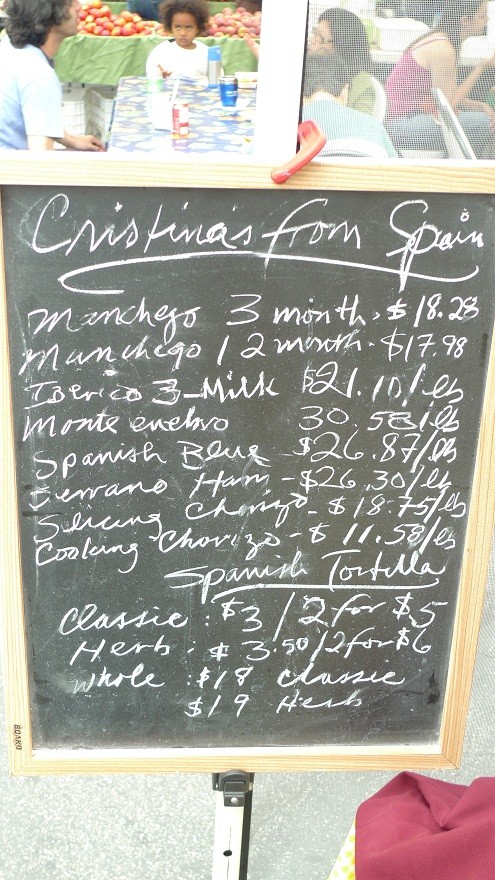 Cristina's from Spain
Manchego 3 month - $18.28
Manchego 12 month - $17.98
Iberico 3-Milk $21.10/lb
Monte enebro 30.58/lb
Spanish Blue $26.87/lb
Serrano Ham - $26.30/lb
Slicing Chorizo - $18.75/lb
Cooking Chorizo - $11.58/lb
Spanish Tortilla
Classic : $3 / 2 for $5
Herb : $3.50/2 for $6
Whole : $18 Classic
$19 Herb
BOARD